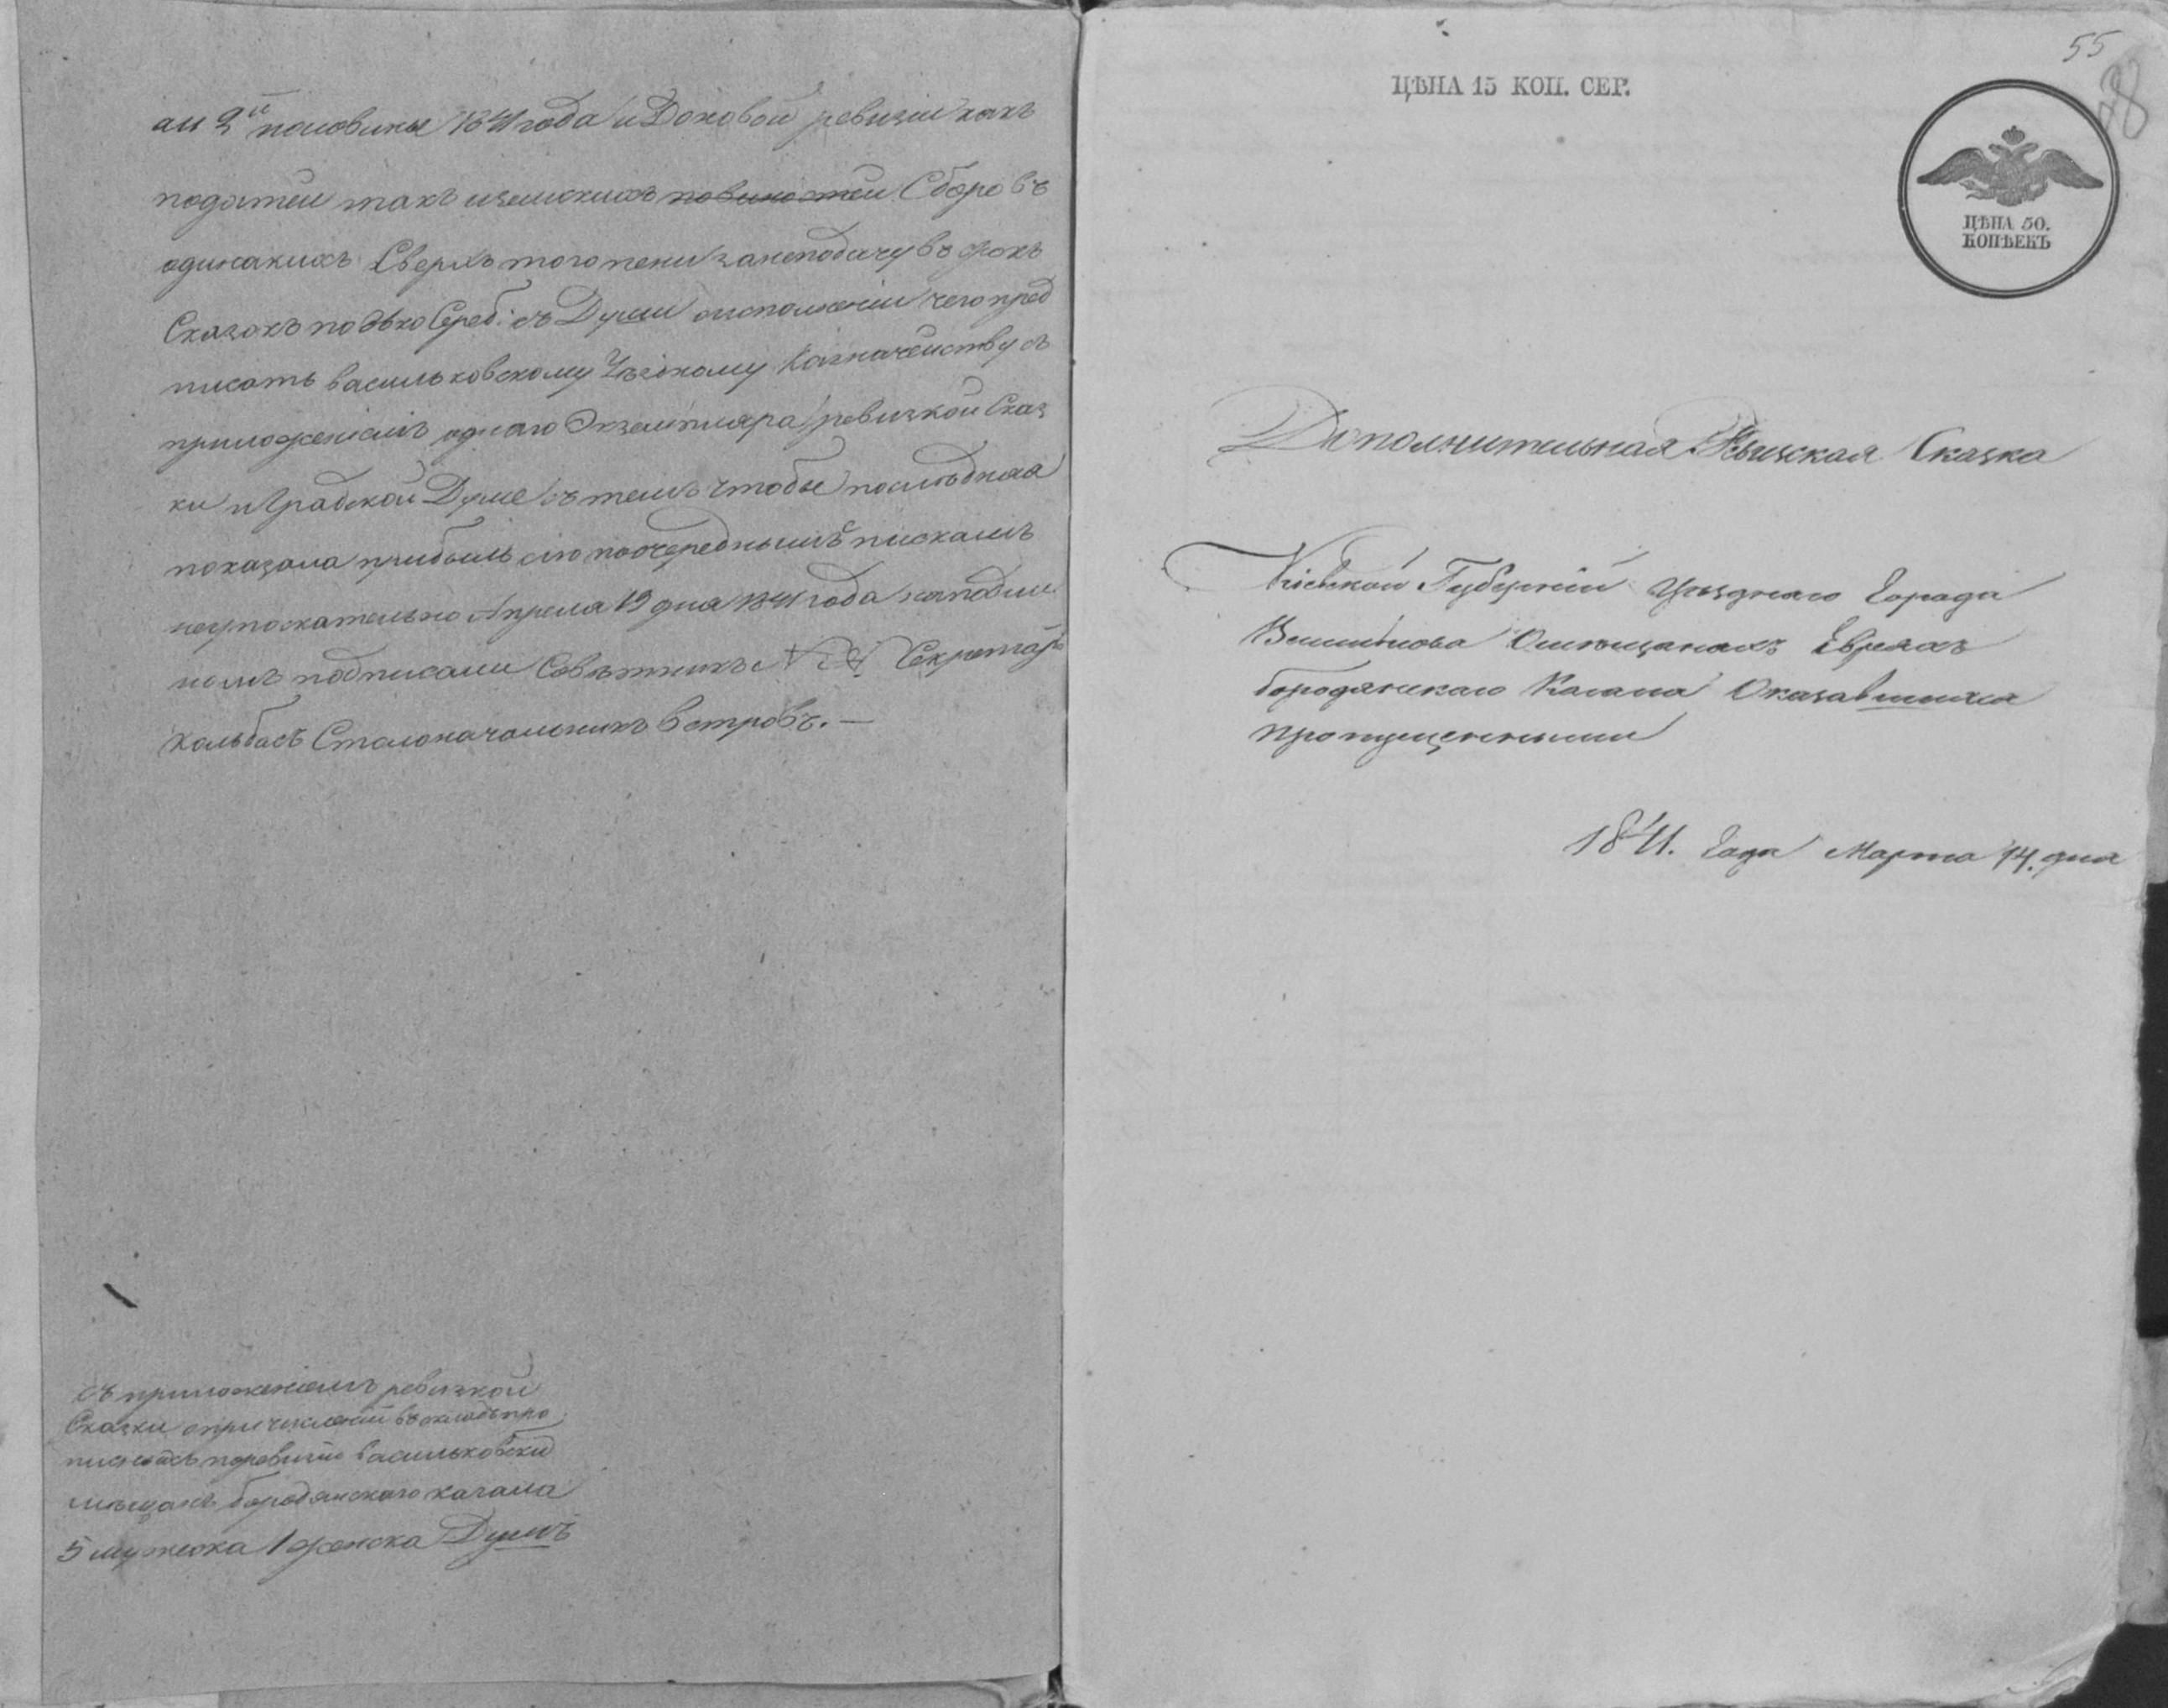 ам 2й половины 1841 года и Доновой ревизіи какъ
податей такъ иземскихъ повиностей Сборовъ
одинакихъ Сверхъ того пени занеподачу въ срокъ
Сказокъ по Сереб: съ Души оисполненіи чего пред
писать васильковскому Уѣздному Казначейству съ
приложеніемъ одного Экземпляра ревизкой Сказ
ки иГрадской Думе съ темъ чтобы последняя
показала прибыль сію поочереднымъ спискамъ
неупоскательно Апреля 19 дня 1841 года наподлин
номъ подписали Советникъ Секретарь
Кольбасъ Столоначальникъ Встровъ. —
Съ приложеніемъ ревизкой
Сказки опричисленіи вокладъ про
писныхъ поревизіи васильковски
мѣщанъ бородянскаго кагала
5 мужеска 1 женска Душъ
55
ЦѢНА 15 КОП. СЕР.
ЦѢНА 50.
КОПѢЕКЪ
Дополнительная Ревизская Сказка
Кіевской Губерніи Уѣзднаго Города
Василькова Омѣщанахъ Евреяхъ
бородянскаго Кагала Оказавшимися
пропущенными
1841. Года Марта 14. дня